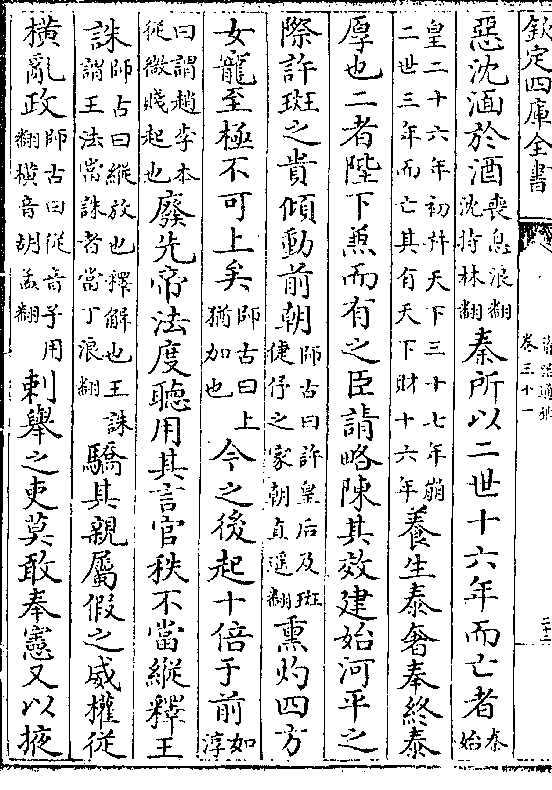 欽定四庫全書
卷三十一
惡沈湎於酒喪息浪翻沈持林翻秦所以二世十六年而亡者秦始
皇二十六年初并天下三十七年崩二世三年而亡其有天下財十六年養生泰奢奉終泰
厚也二者陛下兼而有之臣請略陳其效建始河平之
際許班之貴傾動前朝師古曰許皇后及班倢伃之家朝直遥翻熏灼四方
女寵至極不可上矣師古曰上猶加也今之後起十倍于前如淳
曰謂趙李本從微賤起也廢先帝法度聽用其言官秩不當縱釋王
誅師古曰縱放也釋解也王誅謂王法當誅者當丁浪翻驕其親屬假之威權從
橫亂政師古曰從音子用翻橫音胡孟翻刺舉之吏莫敢奉憲又以掖